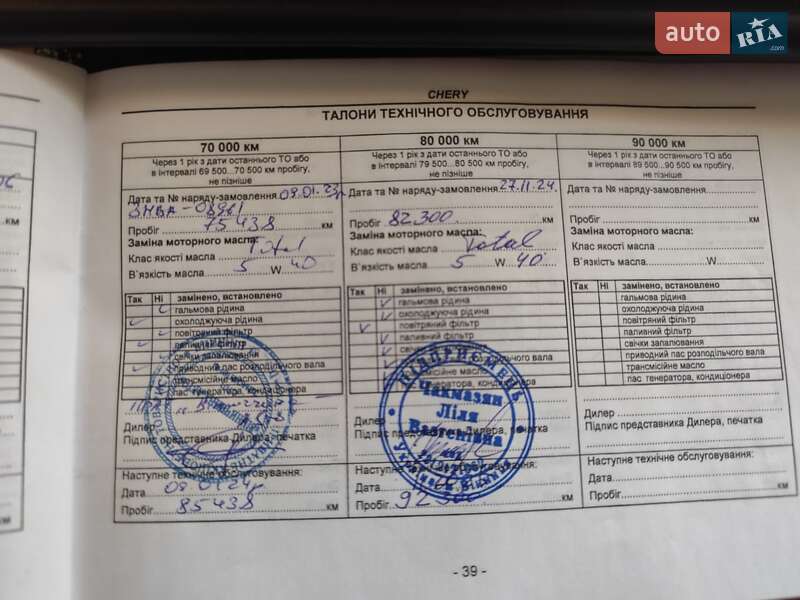 auto RIA .com
CHERY
ТАЛОНИ ТЕХНІЧНОГО ОБСЛУГОВУВАННЯ
70 000 км
Через 1 рік з дати останнього ТО або
в інтервалі 69 500...70 500 км пробігу,
не пізніше
Дата та № наряду-замовлення 09.01.23р
Пробіг 75438 км
Заміна моторного масла:
Клас якості масла Total
В`язкість масла 5 W 40
Так Ні замінено, встановлено
гальмова рідина
охолоджуюча рідина
повітряний фільтр
паливний фільтр
свічки запалювання
приводний пас розподільчого вала
трансмісійне масло
пас генератора, кондиціонера
Дилер
Підпис представника Дилера, печатка
Наступне технічне обслуговування:
Дата 09.01.24р
Пробіг 85438 км
80 000 км
Через 1 рік з дати останнього ТО або
в інтервалі 79 500...80 500 км пробігу,
не пізніше
Дата та № наряду-замовлення 27.11.24.
Пробіг 82300 км
Заміна моторного масла:
Клас якості масла Total
В`язкість масла 5 W 40
Так Ні замінено, встановлено
гальмова рідина
охолоджуюча рідина
повітряний фільтр
паливний фільтр
свічки
приводний пас розподільчого вала
трансмісійне масло
пас генератора, кондиціонера
ПІДПРИЄМЕЦЬ
Чакмазян
Ліля
Валентинівна
Дилер
Підпис представника Дилера, печатка
Наступне технічне обслуговування:
Дата
Пробіг 92300 км
90 000 км
Через 1 рік з дати останнього ТО або
в інтервалі 89 500...90 500 км пробігу,
не пізніше
Дата та № наряду-замовлення
Пробіг км
Заміна моторного масла:
Клас якості масла
В`язкість масла W
Так Ні замінено, встановлено
гальмова рідина
охолоджуюча рідина
повітряний фільтр
паливний фільтр
свічки запалювання
приводний пас розподільчого вала
трансмісійне масло
пас генератора, кондиціонера
Дилер
Підпис представника Дилера, печатка
Наступне технічне обслуговування:
Дата
Пробіг км
км
км
- 39 -